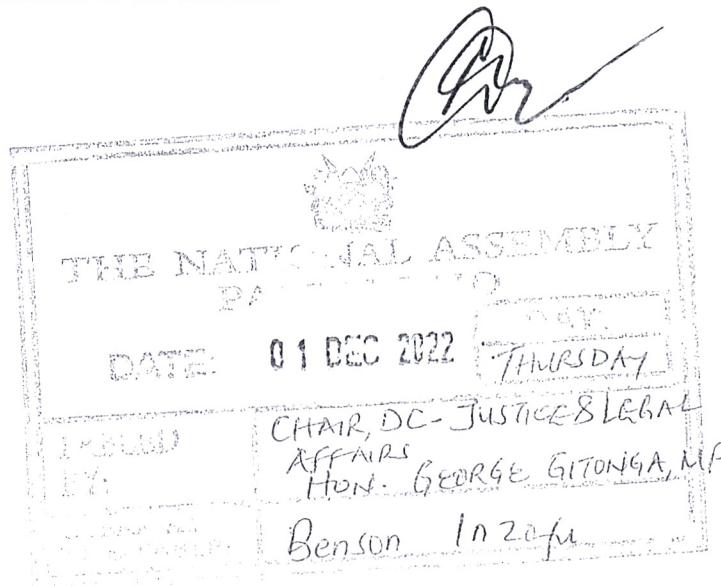 THE NATIONAL ASSEMBLY
DATE: 01 DEC 2022
DAY:
THURSDAY
CHAIR, DC - JUSTICE & LEGAL
AFFAIRS
HON. GEORGE GITONGA, MP
BY:
Benson Inzofu